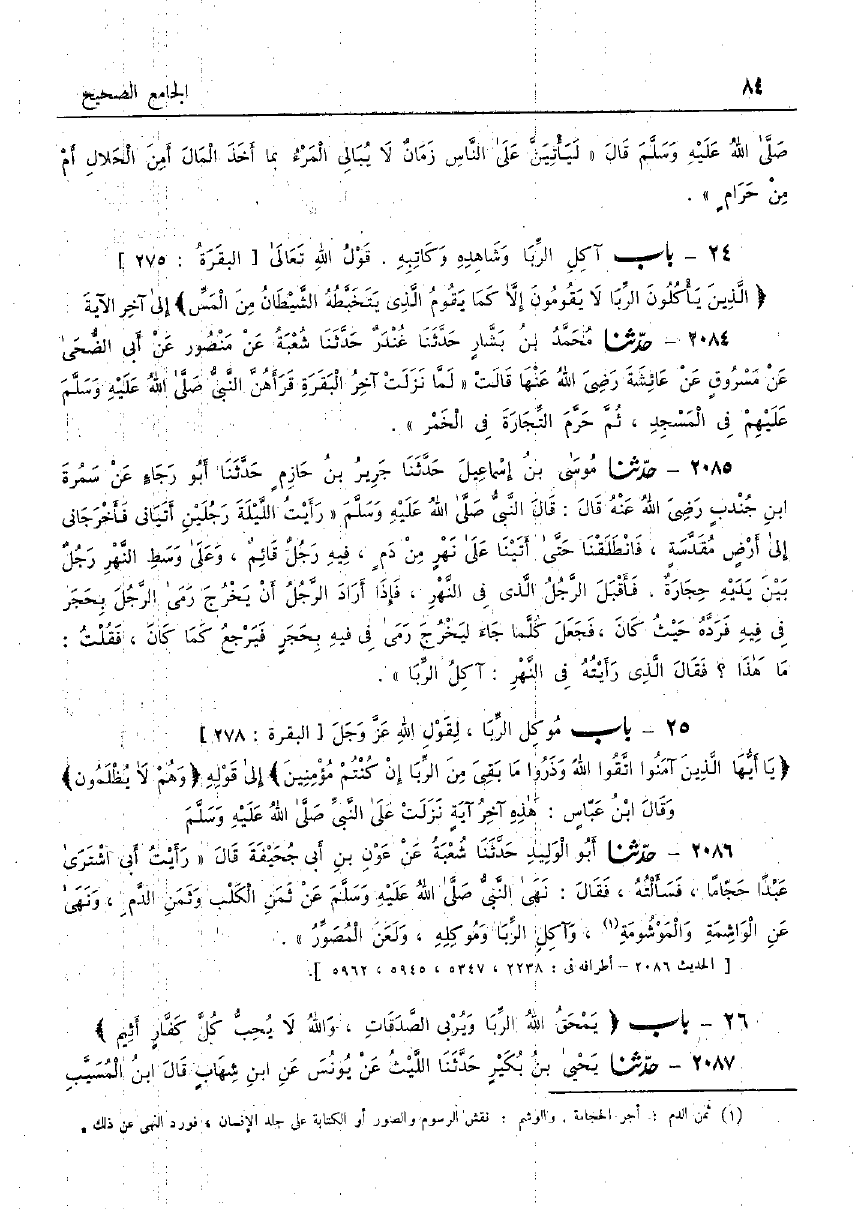 ٨٤ الجامع الصحيح
صَلَّىٰ اللهُ عَلَيْهِ وَسَلَّمَ قَالَ « لَيَأْتِيَنَّ عَلَىٰ النَّاسِ زَمَانٌ لَا يُبَالِى الْمَرْءُ بِمَا أَخَذَ الْمَالَ أَمِنَ الْحَلَالِ أَمْ
مِنْ حَرَامٍ » .
٢٤ – باب آكِلِ الرِّبَا وَشَاهِدِهِ وَكَاتِبِهِ . قَوْلُ اللهِ تَعَالَىٰ [ البقَرَةُ : ٢٧٥ ]
﴿ الَّذِينَ يَأْكُلُونَ الرِّبَا لَا يَقُومُونَ إِلَّا كَمَا يَقُومُ الَّذِى يَتَخَبَّطُهُ الشَّيْطَانُ مِنَ الْمَسِّ ﴾ إِلىٰ آخِرِ الآيَةَ
٢٠٨٤ – حدّثنا مُحَمَّدُ بنُ بَشَّارٍ حَدَّثَنَا غُنْدَرٌ حَدَّثَنَا شُعْبَةُ عَنْ مَنْصُورٍ عَنْ أَبِى الضُّحَىٰ
عَنْ مَسْرُوقٍ عَنْ عَائِشَةَ رَضِىَ اللهُ عَنْهَا قَالَتْ « لَمَّا نَزَلَتْ آخِرُ الْبَقَرَةِ قَرَأَهُنَّ النَّبِىُّ صَلَّىٰ اللهُ عَلَيْهِ وَسَلَّمَ
عَلَيْهِمْ فِى الْمَسْجِدِ ، ثُمَّ حَرَّمَ التِّجَارَةَ فِى الْخَمْرِ » .
٢٠٨٥ – حدّثنا مُوسَىٰ بنُ إِسْمَاعِيلَ حَدَّثَنَا جَرِيرُ بنُ حَازِمٍ حَدَّثَنَا أَبُو رَجَاءٍ عَنْ سَمُرَةَ
ابنِ جُنْدَبٍ رَضِىَ اللهُ عَنْهُ قَالَ : قَالَ النَّبِىُّ صَلَّىٰ اللهُ عَلَيْهِ وَسَلَّمَ « رَأَيْتُ اللَّيْلَةَ رَجُلَيْنِ أَتَيَانِى فَأَخْرَجَانِى
إِلىٰ أَرْضٍ مُقَدَّسَةٍ ، فَانْطَلَقْنَا حَتَّىٰ أَتَيْنَا عَلَىٰ نَهْرٍ مِنْ دَمٍ ، فِيهِ رَجُلٌ قَائِمٌ ، وَعَلَىٰ وَسَطِ النَّهْرِ رَجُلٌ
بَيْنَ يَدَيْهِ حِجَارَةٌ . فَأَقْبَلَ الرَّجُلُ الَّذِى فِى النَّهْرِ ، فَإِذَا أَرَادَ الرَّجُلُ أَنْ يَخْرُجَ رَمَىٰ الرَّجُلَ بِحَجَرٍ
فِى فِيهِ فَرَدَّهُ حَيْثُ كَانَ ، فَجَعَلَ كُلَّمَا جَاءَ لِيَخْرُجَ رَمَىٰ فِى فِيهِ بِحَجَرٍ فَيَرْجِعُ كَمَا كَانَ ، فَقُلْتُ :
مَا هَٰذَا ؟ فَقَالَ الَّذِى رَأَيْتُهُ فِى النَّهْرِ : آكِلُ الرِّبَا » .
٢٥ – باب مُوكِلِ الرِّبَا ، لِقَوْلِ اللهِ عَزَّ وَجَلَّ [ البقرة : ٢٧٨ ]
﴿ يَا أَيُّهَا الَّذِينَ آمَنُوا اتَّقُوا اللهَ وَذَرُوا مَا بَقِىَ مِنَ الرِّبَا إِنْ كُنْتُمْ مُؤْمِنِينَ ﴾ إِلىٰ قَوْلِهِ ﴿ وَهُمْ لَا يُظْلَمُون ﴾
وَقَالَ ابنُ عَبَّاسٍ : هَٰذِهِ آخِرُ آيَةٍ نَزَلَتْ عَلَىٰ النَّبِىِّ صَلَّىٰ اللهُ عَلَيْهِ وَسَلَّمَ
٢٠٨٦ – حدّثنا أَبُو الْوَلِيدِ حَدَّثَنَا شُعْبَةُ عَنْ عَوْنِ بنِ أَبِى جُحَيْفَةَ قَالَ « رَأَيْتُ أَبِى اشْتَرَىٰ
عَبْدًا حَجَّامًا ، فَسَأَلْتُهُ ، فَقَالَ : نَهَىٰ النَّبِىُّ صَلَّىٰ اللهُ عَلَيْهِ وَسَلَّمَ عَنْ ثَمَنِ الْكَلْبِ وَثَمَنِ الدَّمِ ، وَنَهَىٰ
عَنِ الْوَاشِمَةِ وَالْمَوْشُومَةِ (١) ، وَآكِلِ الرِّبَا وَمُوكِلِهِ ، وَلَعَنَ الْمُصَوِّرَ » .
[ الحديث ٢٠٨٦ – أطرافه فى : ٢٢٣٨ ، ٥٣٤٧ ، ٥٩٤٥ ، ٥٩٦٢ ].
٢٦ – باب ﴿ يَمْحَقُ اللهُ الرِّبَا وَيُرْبِى الصَّدَقَاتِ ، وَاللهُ لَا يُحِبُّ كُلَّ كَفَّارٍ أَثِيمٍ ﴾
٢٠٨٧ – حدّثنا يَحْيَىٰ بنُ بُكَيْرٍ حَدَّثَنَا اللَّيْثُ عَنْ يُونُسَ عَنِ ابنِ شِهَابٍ قَالَ ابنُ الْمُسَيَّبِ
(١) ثمن الدم : أجر الحجامة . والوشم : نقش الرسوم والصور أو الكتابة على جلد الإنسان ، فورد النهى عن ذلك .